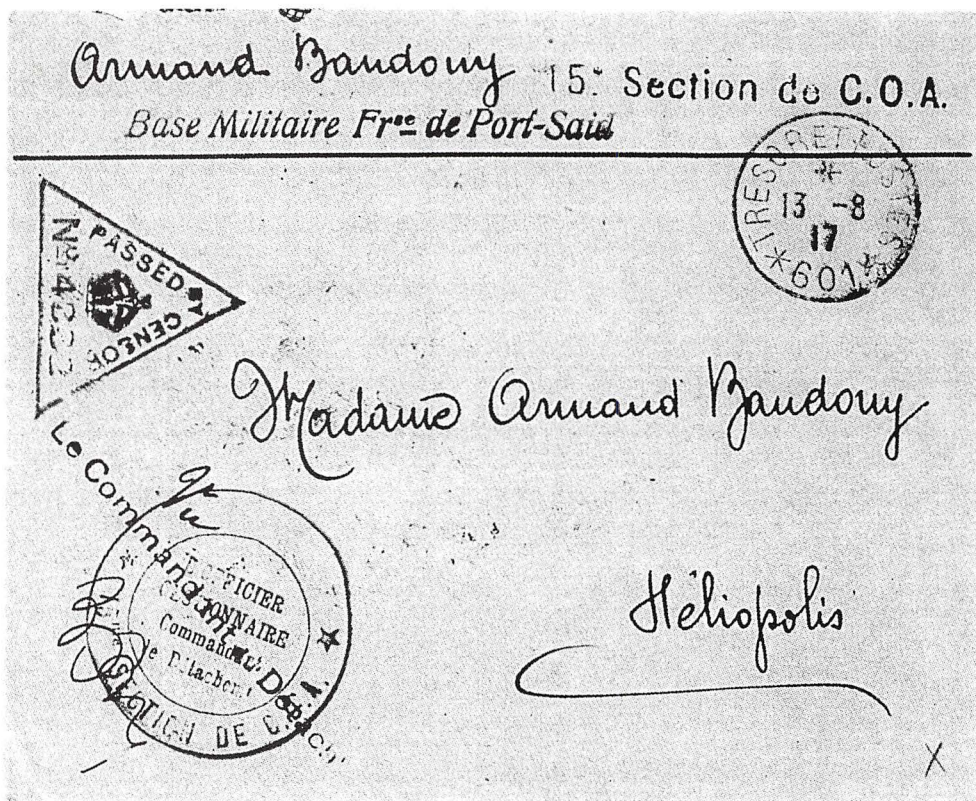 Armand Baudouy 15e Section de C.O.A.
Base Militaire Frse de Port-Said
TRESOR ET POSTES
13 -8
17
*601*
PASSED BY CENSOR
No 4832
Madame Armand Baudouy
Héliopolis
Vu
Le Commandant du Détacht
L'OFFICIER
GESTIONNAIRE
Commandant
le Détachement
SECTION DE C.O.A.
X